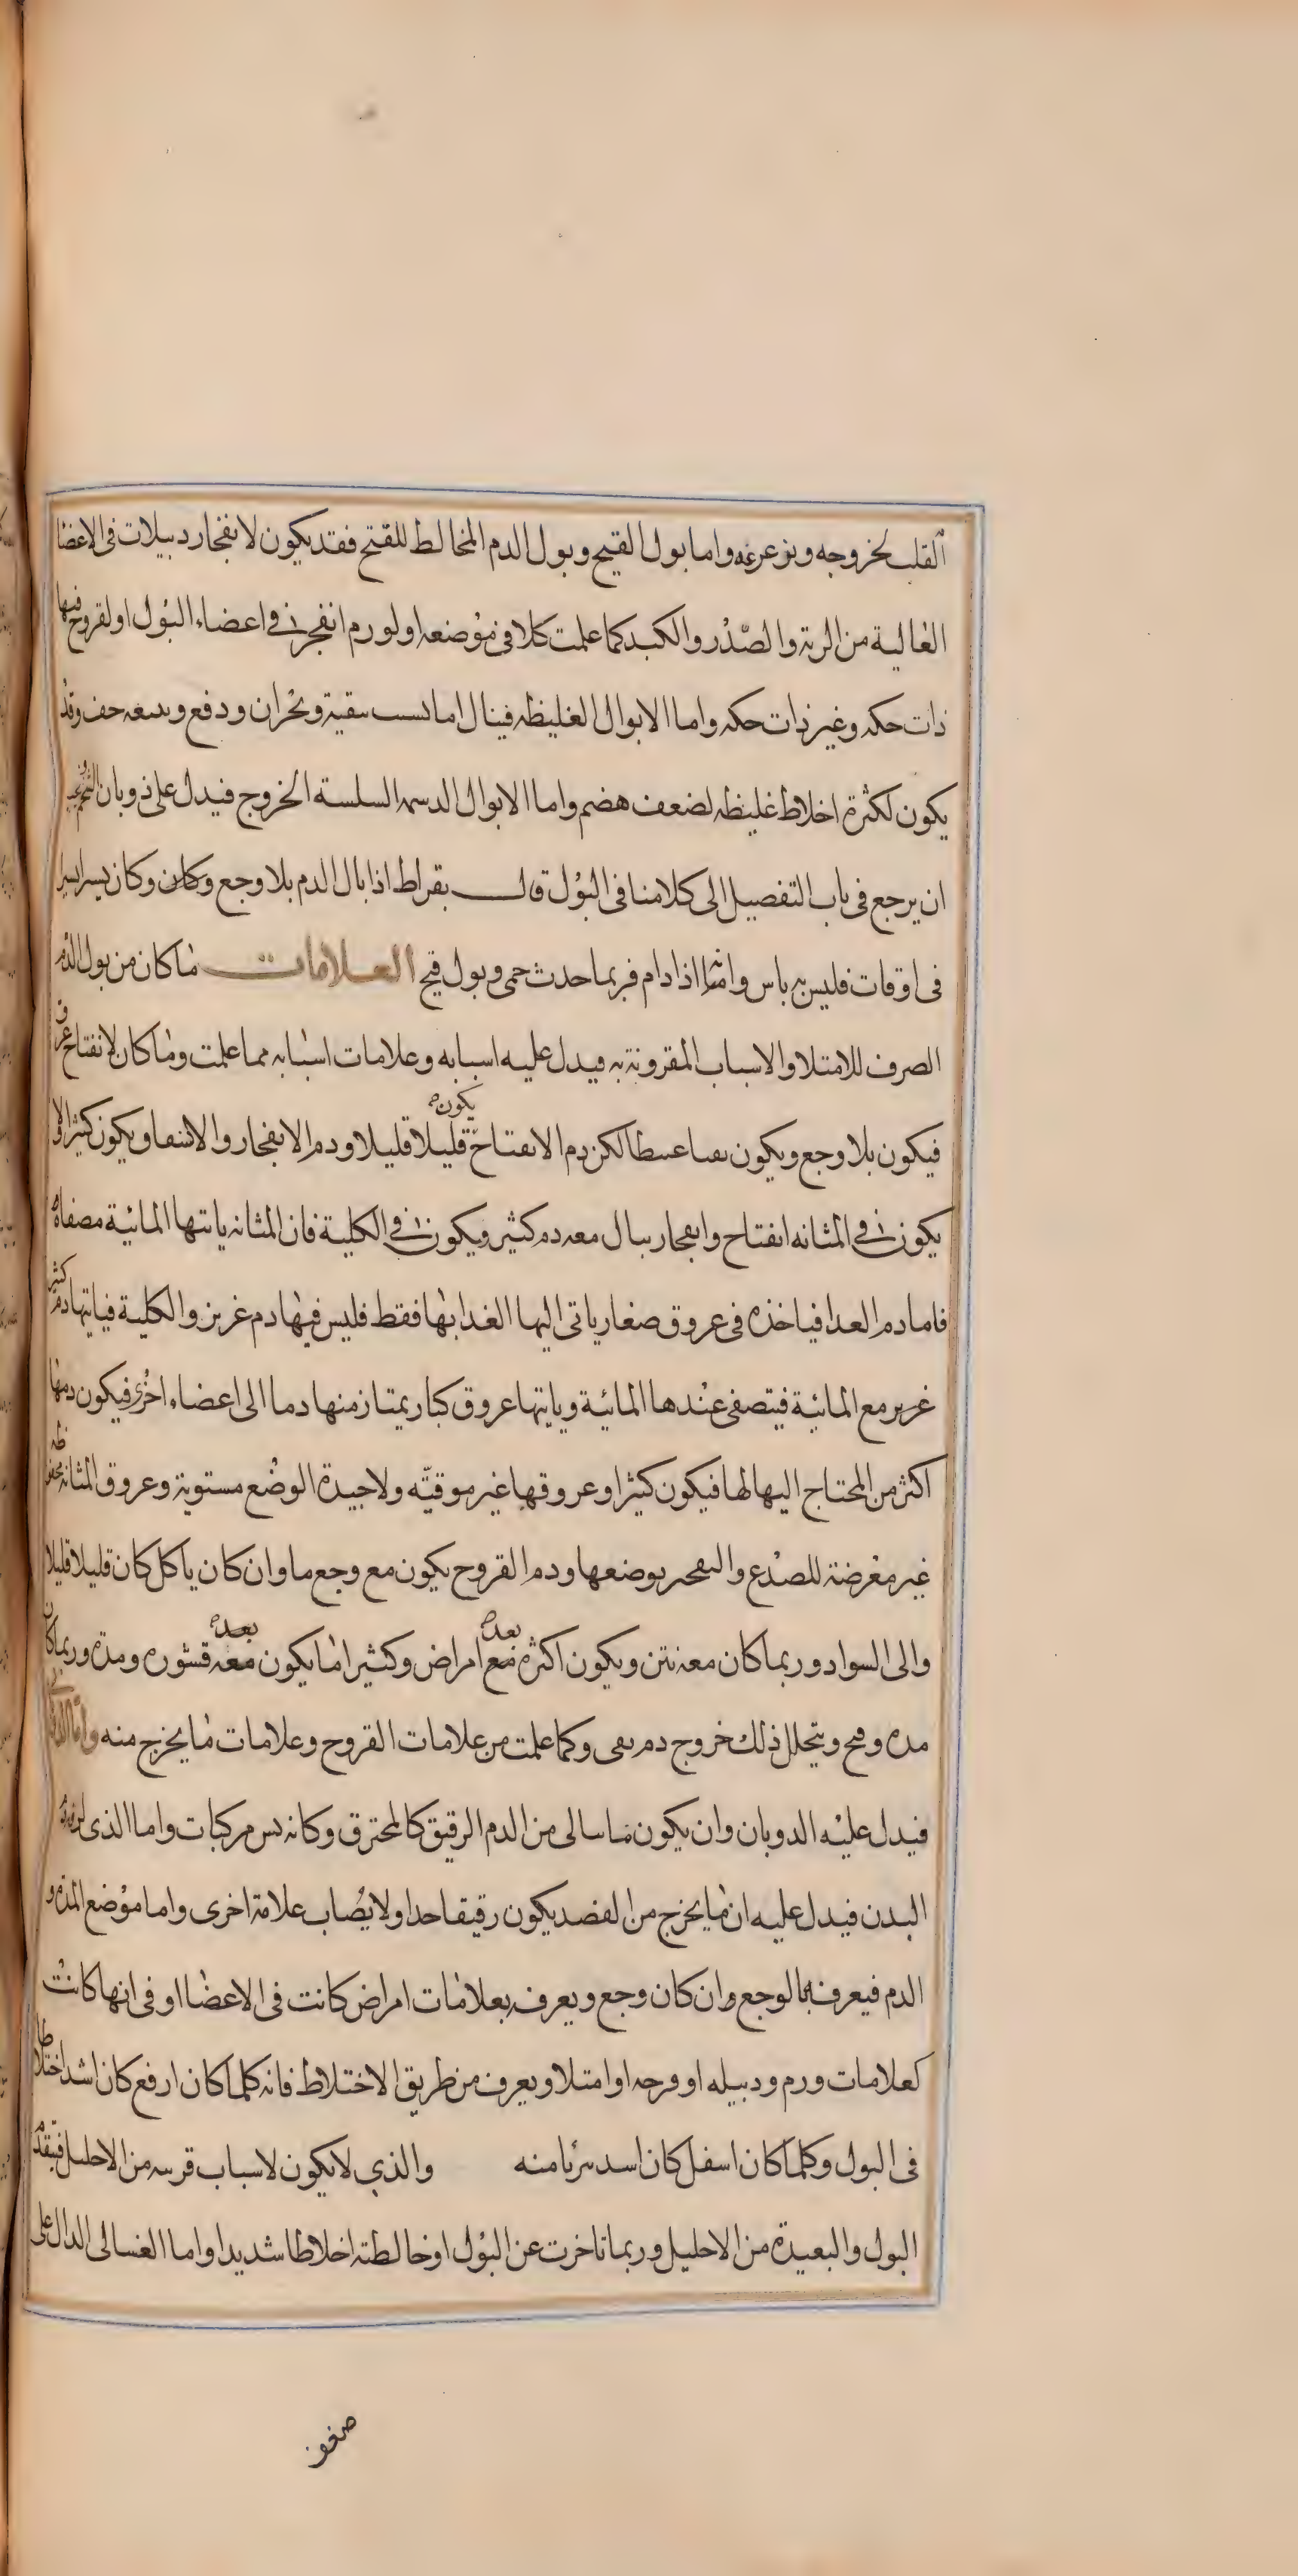 القلب لخروجه وتزعزعه واما بول القيح وبول الدم المخالط للقيح فقد يكون لانفجار دبيلات فى الاعضا
العالية من الرية والصّدر والكبد كما علمت كلا فى موضعه او لورم انفجر فى اعضاء البول او لقروح فيها
ذات حكه وغير ذات حكه واما الابوال الغليظه فينال اما بسبب تنقية وبحران ودفع ويتبعه خف وقد
يكون لكثرة اخلاط غليظه لضعف هضم واما الابوال الدسمه السلسة الخروج فيدل على ذوبان الشحم
ان يرجع فى باب التفصيل الى كلامنا فى البول قال بقراط اذا بال الدم بلا وجع وكان وكان يسيرا يسيرا
فى اوقات فليس به باس واما اذا دام فربما حدث حمى وبول قيح العلامات ما كان من بول الدم
الصرف للامتلا والاسباب المقرونة به فيدل عليه اسبابه وعلامات اسبابه مما علمت وما كان لانفتاح عرق
فيكون بلا وجع ويكون نقيا عبيطا لكن دم الانفتاح يكون قليلا قليلا ودم الانفجار والانشقاق يكون كثيرا ولا
يكون فى المثانه انفتاح وانفجار يبال معه دم كثير ويكون فى الكلية فان المثانه ياتيها المائية مصفاة
فاما دم الغدا فياخذه فى عروق صغار ياتى اليها الغدا بها فقط فليس فيها دم غزيز والكلية فياتيها دم كثير
غرير مع المائية فيتصفى عندها المائية وياتيها عروق كبار يمتاز منها دما الى اعضاء اخرى فيكون دمها
اكثر من المحتاج اليها لها فيكون كثيرا وعروقها غير موقيّه ولا جيدة الوضع مستوية وعروق المثانه محفوظه
غير معرضة للصدع والتفجر بوضعها ودم القروح يكون مع وجع ما وان كان ياكل كان قليلا قليلا
والى السواد وربما كان معه نتن ويكون اكثره مع بعده امراض وكثيرا ما يكون معه بعده قشوره ومدة وربما كان
مده وقيح ويتخلل ذلك خروج دم نقى وكما علمت من علامات القروح وعلامات ما يخرج منه واما الذوبانى
فيدل عليه الدوبان وان يكون ما سالى من الدم الرقيق كالمحترق وكانه بس مركبات واما الذى لرقة
البدن فيدل عليه ان ما يخرج من الفصد يكون رقيقا جدا ولا يصاب علامة اخرى واما موضع المدة و
الدم فيعرف بالوجع وان كان وجع ويعرف بعلامات امراض كانت فى الاعضا او فى انها كانت
كعلامات ورم ودبيله او قرحه او امتلا ويعرف من طريق الاختلاط فانه كلما كان ارفع كان اشد اختلاطا
فى البول وكلما كان اسفل كان اسد تبريا منه والذى لا يكون لاسباب قريبه من الاحليل فيتقدم
البول والبعيدة من الاحليل وربما تاخرت عن البول او خالطته اخلاطا شديدا واما الغسالى الدال على